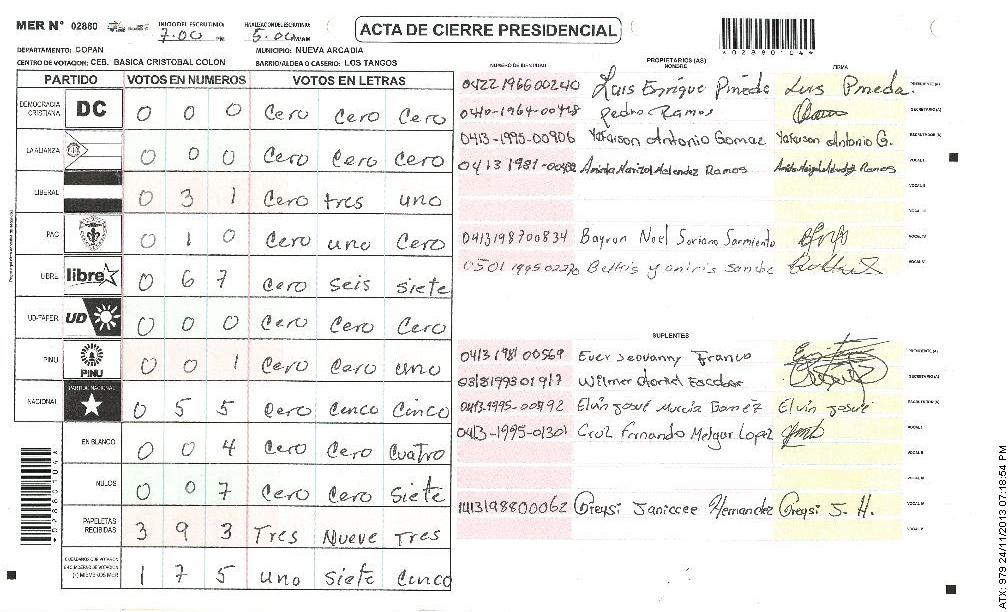 MER N° 02880 INICIO DEL ESCRUTINIO: 7:00 PM FINALIZACION DEL ESCRUTINIO: 5:00 ACTA DE CIERRE PRESIDENCIAL
*02880104*
DEPARTAMENTO: COPAN MUNICIPIO: NUEVA ARCADIA
CENTRO DE VOTACION: CEB. BASICA CRISTOBAL COLON BARRIO/ALDEA O CASERIO: LOS TANGOS
PARTIDO VOTOS EN NUMEROS VOTOS EN LETRAS
DEMOCRACIA CRISTIANA DC 0 0 0 Cero Cero Cero
LA ALIANZA 0 0 0 Cero Cero Cero
LIBERAL 0 3 1 Cero tres uno
PAC 0 1 0 Cero uno Cero
LIBRE libre 0 6 7 Cero Seis Siete
UD-FAPER UD 0 0 0 Cero Cero Cero
PINU PINU 0 0 1 Cero Cero uno
NACIONAL PARTIDO NACIONAL 0 5 5 Cero Cinco Cinco
EN BLANCO 0 0 4 Cero Cero Cuatro
NULOS 0 0 7 Cero Cero Siete
PAPELETAS RECIBIDAS 3 9 3 Tres Nueve Tres
CIUDADANOS QUE VOTARON EN CUADERNO DE VOTACION (+) MIEMBROS MER 1 7 5 uno Siete Cinco
*02880104*
PROPIETARIOS (AS)
NUMERO DE IDENTIDAD NOMBRE FIRMA
0422 1966 00240 Luis Enrique Pineda Luis Pineda PRESIDENTE (A)
0410-1964-00428 Pedro Ramos SECRETARIO (A)
0413-1995-00906 Antonio Gomez Antonio G. ESCRUTADOR (A)
0413 1981 Melendez Ramos Ramos VOCAL I
VOCAL II
VOCAL III
0413198700834 Bayron Noel Soriano Sarmiento VOCAL IV
0501 1995 VOCAL V
SUPLENTES
0413 1981 00569 Ever Jeovanny Franco PRESIDENTE (A)
Wilmer Escobar SECRETARIO (A)
0413-1995-00792 Elvin Josué Murcia Gomez Elvin Josué ESCRUTADOR (A)
0413-1995-01301 Cruz Fernando Melgar Lopez VOCAL I
VOCAL II
VOCAL III
1413198800062 Greysi Janiccee Hernandez Greysi J. H. VOCAL IV
VOCAL V
ATX: 979 24/11/2013 07:18:54 PM